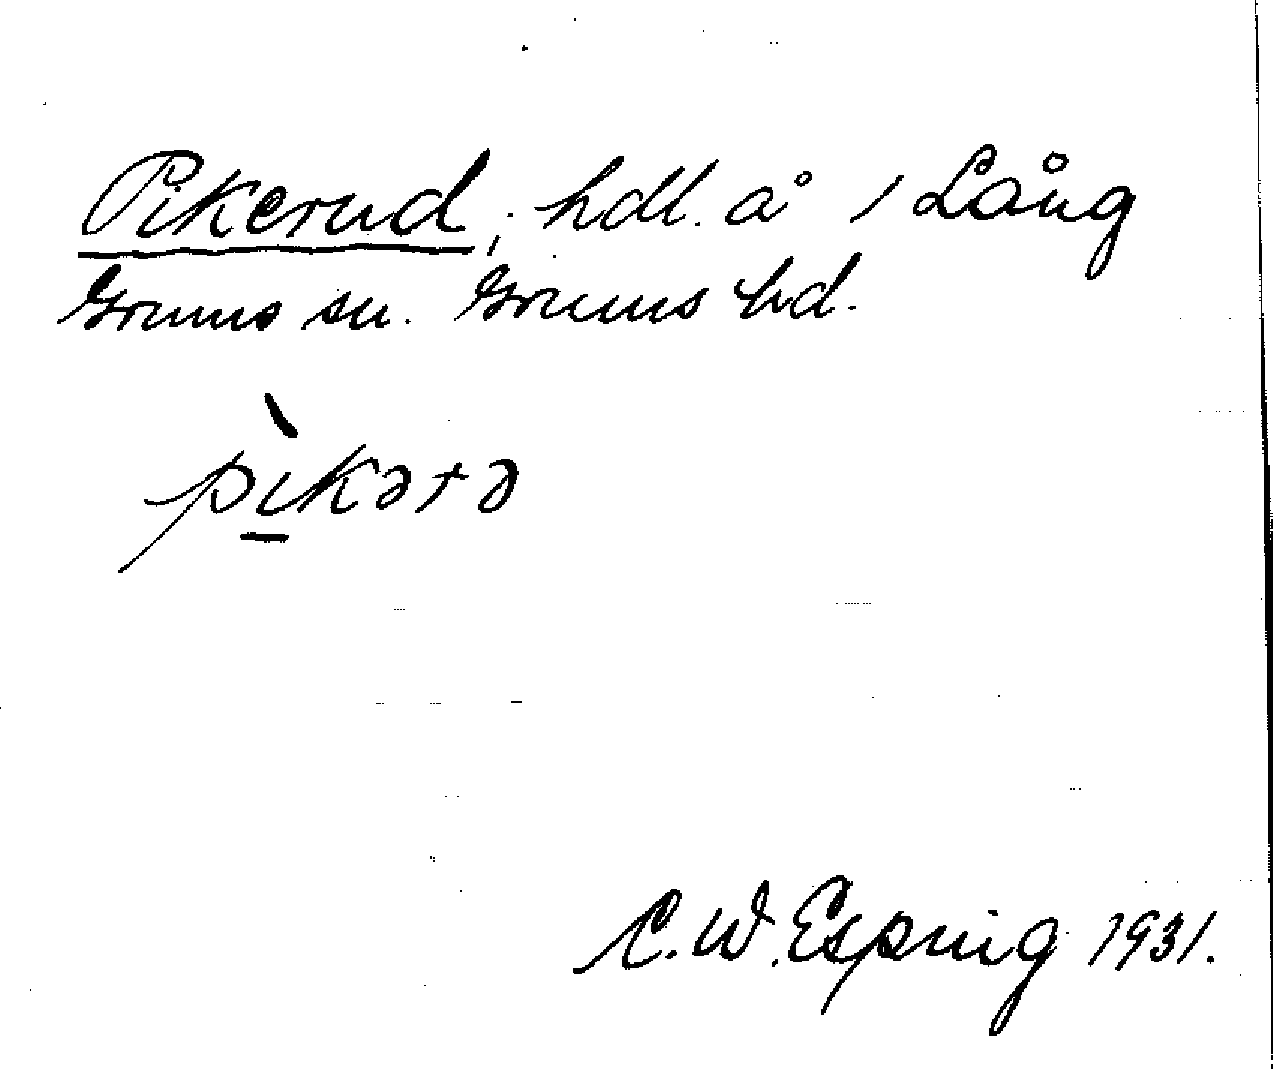 Pikerud, hdl. å 1 Lång
Grums sn. Grums hd.
pìkərə
C. W. Esping 1931.